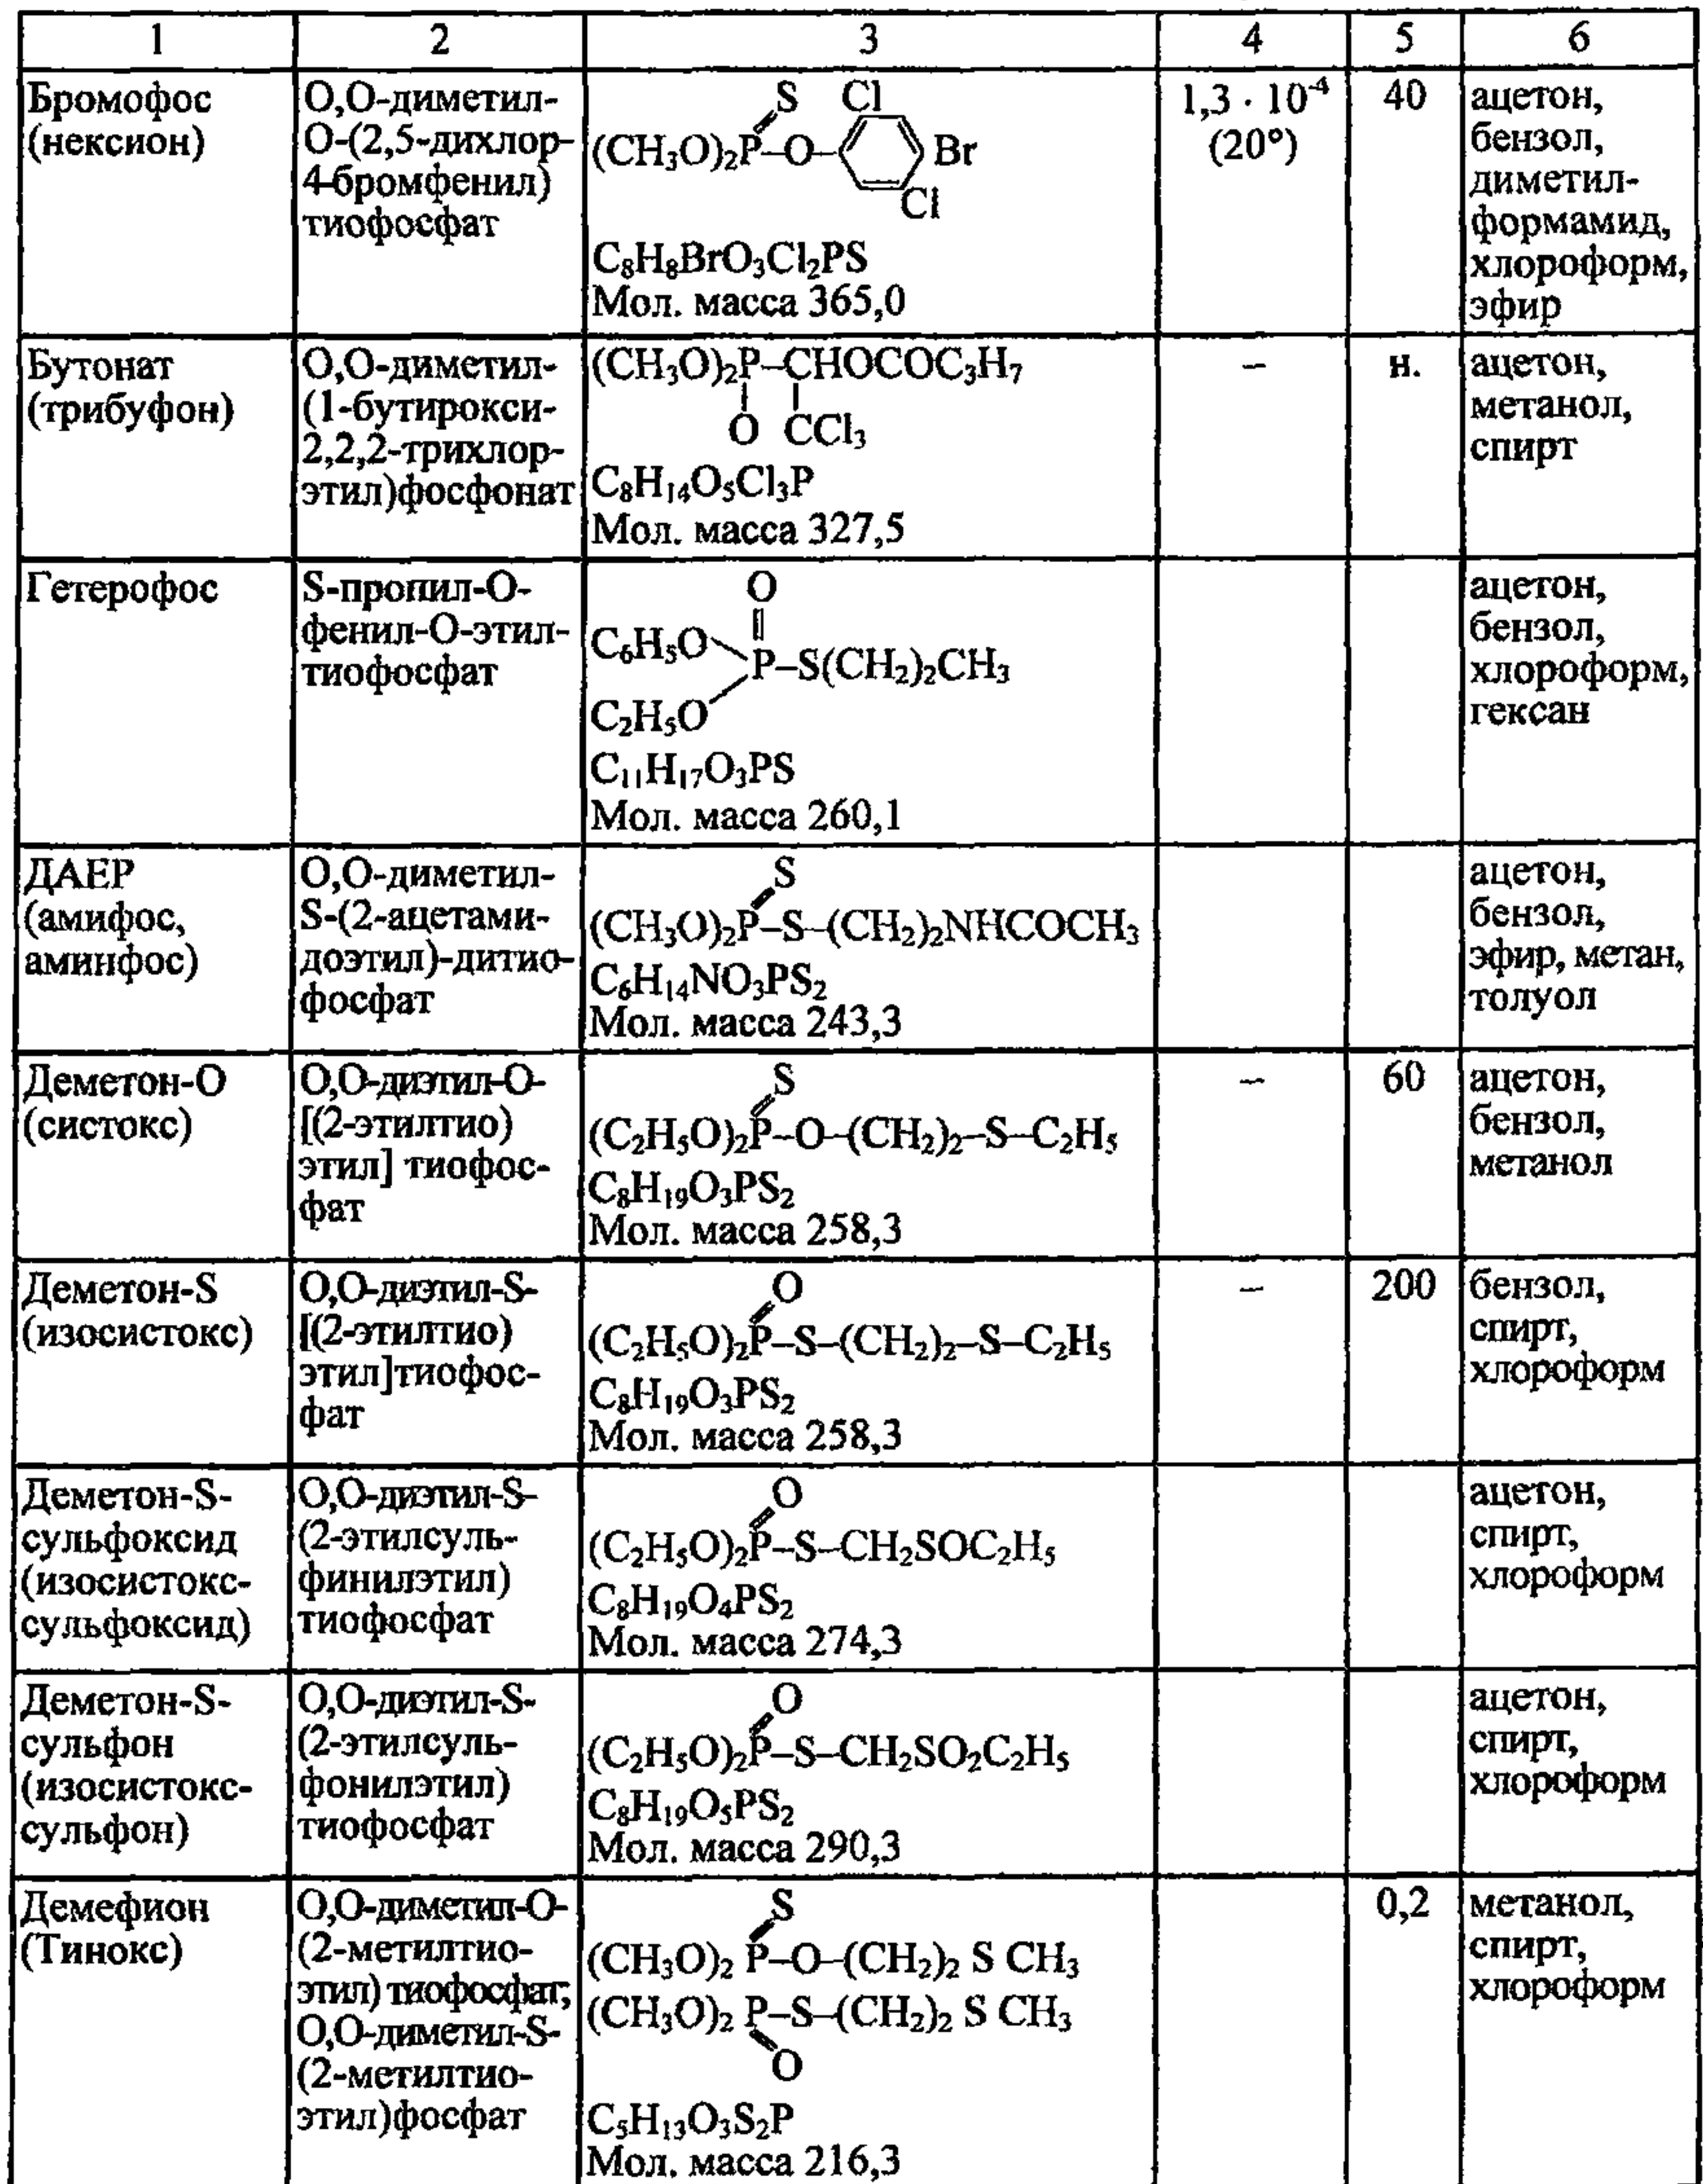 1 2 3 4 5 6
Бромофос
(нексион)
О,О-диметил-
О-(2,5-дихлор-
4-бромфенил)
тиофосфат
S Cl
(CH₃O)₂P–O– Br
Cl
C₈H₈BrO₃Cl₂PS
Мол. масса 365,0
1,3 · 10⁻⁴
(20°)
40
ацетон,
бензол,
диметил-
формамид,
хлороформ,
эфир
Бутонат
(трибуфон)
О,О-диметил-
(1-бутирокси-
2,2,2-трихлор-
этил)фосфонат
(CH₃O)₂P–CHOCOC₃H₇
O CCl₃
C₈H₁₄O₅Cl₃P
Мол. масса 327,5
–
н.
ацетон,
метанол,
спирт
Гетерофос
S-пропил-О-
фенил-О-этил-
тиофосфат
O
C₆H₅O
P–S(CH₂)₂CH₃
C₂H₅O
C₁₁H₁₇O₃PS
Мол. масса 260,1
ацетон,
бензол,
хлороформ,
гексан
ДАЕР
(амифос,
аминфос)
О,О-диметил-
S-(2-ацетами-
доэтил)-дитио-
фосфат
S
(CH₃O)₂P–S–(CH₂)₂NHCOCH₃
C₆H₁₄NO₃PS₂
Мол. масса 243,3
ацетон,
бензол,
эфир, метан,
толуол
Деметон-О
(систокс)
О,О-диэтил-О-
[(2-этилтио)
этил] тиофос-
фат
S
(C₂H₅O)₂P–O–(CH₂)₂–S–C₂H₅
C₈H₁₉O₃PS₂
Мол. масса 258,3
–
60
ацетон,
бензол,
метанол
Деметон-S
(изосистокс)
О,О-диэтил-S-
[(2-этилтио)
этил]тиофос-
фат
O
(C₂H₅O)₂P–S–(CH₂)₂–S–C₂H₅
C₈H₁₉O₃PS₂
Мол. масса 258,3
–
200
бензол,
спирт,
хлороформ
Деметон-S-
сульфоксид
(изосистокс-
сульфоксид)
О,О-диэтил-S-
(2-этилсуль-
финилэтил)
тиофосфат
O
(C₂H₅O)₂P–S–CH₂SOC₂H₅
C₈H₁₉O₄PS₂
Мол. масса 274,3
ацетон,
спирт,
хлороформ
Деметон-S-
сульфон
(изосистокс-
сульфон)
О,О-диэтил-S-
(2-этилсуль-
фонилэтил)
тиофосфат
O
(C₂H₅O)₂P–S–CH₂SO₂C₂H₅
C₈H₁₉O₅PS₂
Мол. масса 290,3
ацетон,
спирт,
хлороформ
Демефион
(Тинокс)
О,О-диметил-О-
(2-метилтио-
этил) тиофосфат;
О,О-диметил-S-
(2-метилтио-
этил)фосфат
S
(CH₃O)₂ P–O–(CH₂)₂ S CH₃
(CH₃O)₂ P–S–(CH₂)₂ S CH₃
O
C₅H₁₃O₃S₂P
Мол. масса 216,3
0,2
метанол,
спирт,
хлороформ